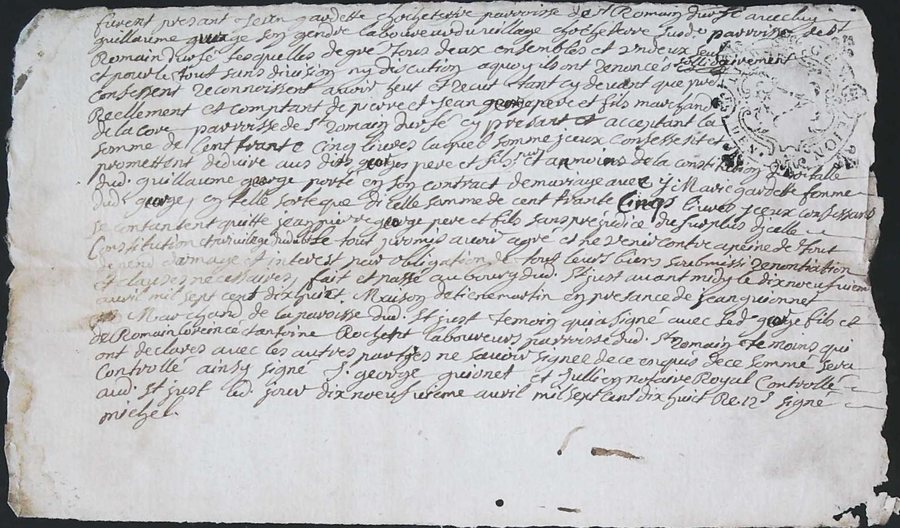 furent presant Jean gardette Chocheterre parroisse de St Romain durfé avec luy
guillaume george son gendre laboureur du village Chocheterre susd parroisse de St
Romain durfé lesquelles de gré tous deux ensembles et un deux seul
et pour le tout sans division ny discution a quoy ils ont renoncés sollidairement
Confessent reconnoissent avoir heut et receut avant cy devant que pre
Reellement et comptant de pierre et Jean george pere et fils marchan
de la Core parroisse de St romain durfé cy presant et acceptant la
somme de Cent trante Cinq livres laquelle somme jceux Confesse et
promettent deduire aus dits george pere et fils et a moins de la constitution dotalle
dud guillaume george porté en son contract de mariage avec Marie gardette femme
dud george, en telle sorte que de telle somme de cent trante Cinqs livres jceux confessants
se contantent quitte Jean pierre george pere et fils sans prejudice du surplus dicelle
Constitution et privilege tout promis avoir agré et ne venir contre a peine de tout
depend damage et interest par obligation de tous leurs biens soubmissi renontiation
et clauses necessaires, fait et passé au bourg dud St just avant midy le dixneufviem
avril mil sept cent dix huit Maison detiene martin en presance de Jean guionnet
Marchand de la paroisse dud St just temoin qui a signé avec led george fils et
de Romain antoine Rochett laboureurs parroisse dud St romain temoins qui
ont declarés avec les autres partyes ne savoir signe de ce enquis de ce sommé sera
Controllé ainsy signé J. george guionet et Jullien notaire Royal Controllé
aud St just led jour dix noeufvieme avril mil sept cent dix huit Re 12s signé
michel.